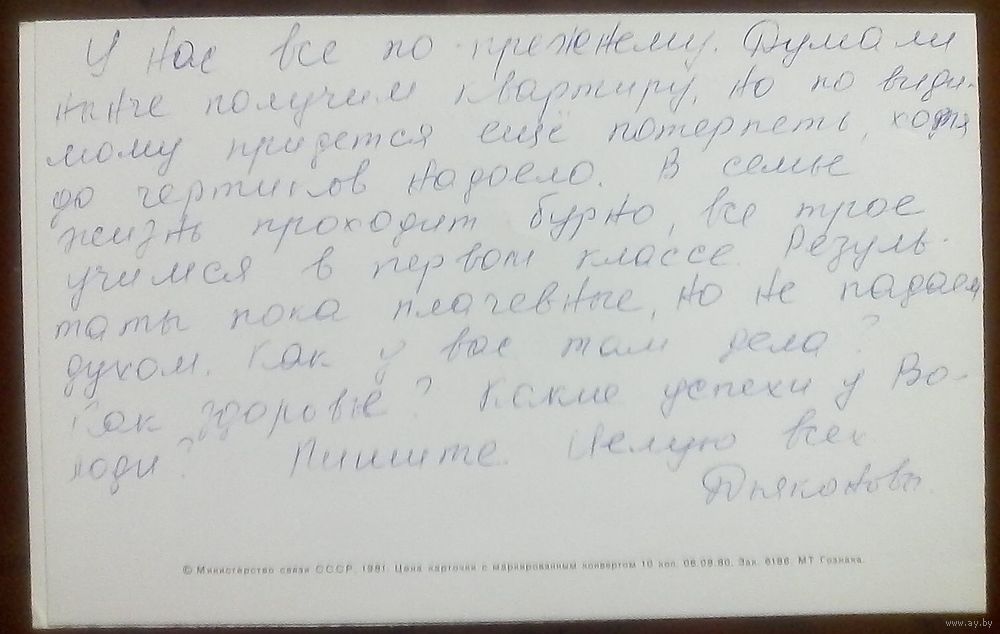 У нас все по-прежнему. Думали
нынче получим квартиру, но по види-
мому придется ещё потерпеть, хотя
до чертиков надоело. В семье
жизнь проходит бурно, все трое
учимся в первом классе. Резуль-
таты пока плачевные, но не падаем
духом. Как у вас там дела?
Как здоровье? Какие успехи у Во-
лоди? Пишите. Целую всех
Дьяконовы.
© Министерство связи СССР, 1981. Цена карточки с маркированным конвертом 10 коп. 06.08.80. Зак. 6186. МТ Гознака.
www.ay.by